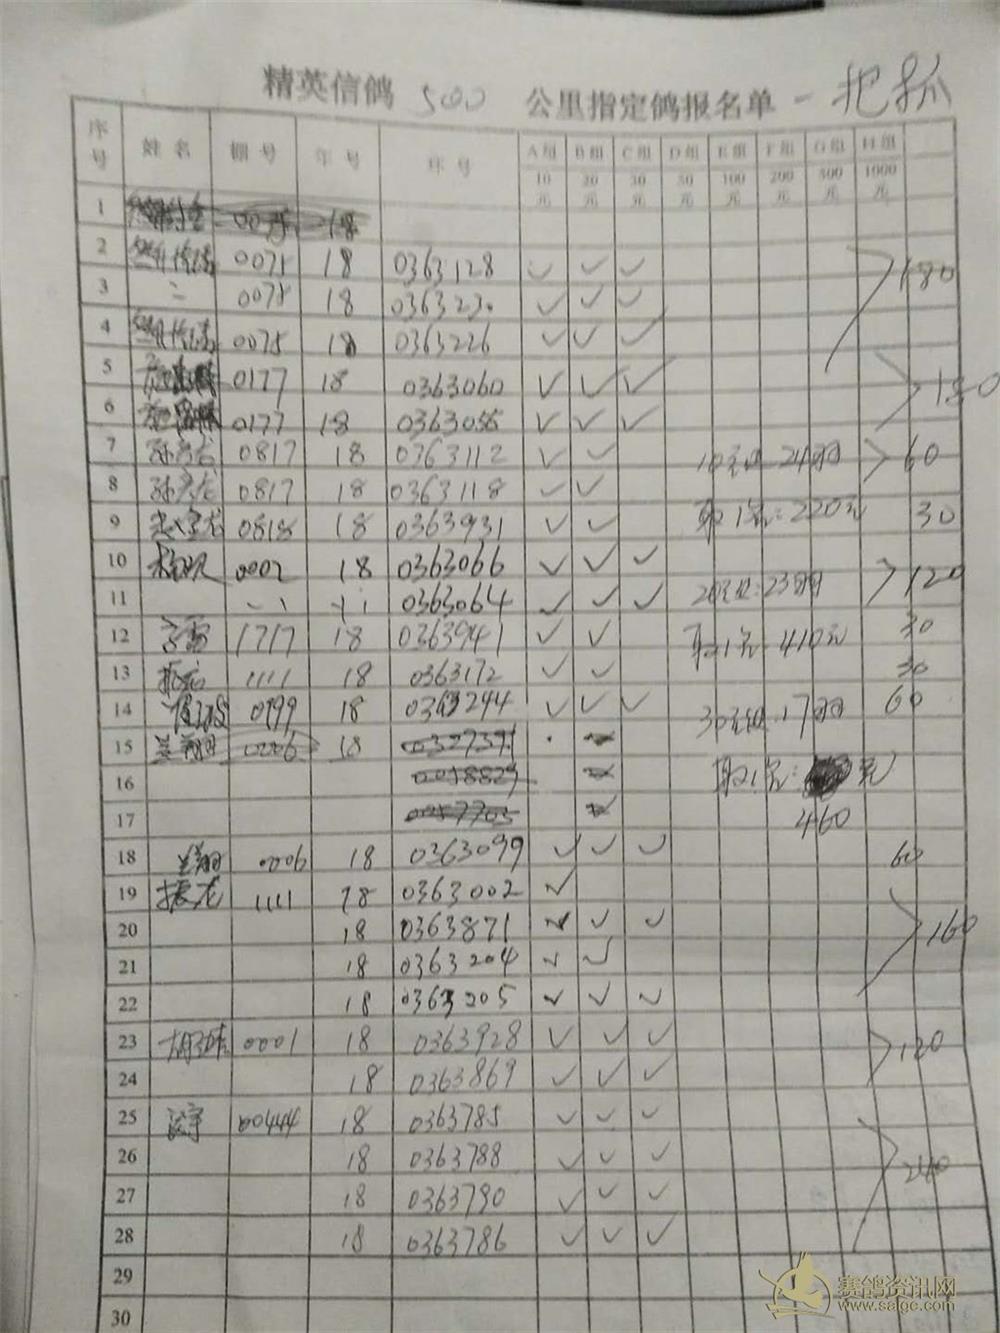 精英信鸽 500 公里指定鸽报名单 一把抓
序号 姓名 棚号 年号 序号 A组 B组 C组 D组 E组 F组 G组 H组
10元 20元 30元 50元 100元 200元 500元 1000元
1
2 0075 18 0363128 ✓ ✓ ✓
3 0075 18 036323 ✓ ✓ ✓ 180
4 0075 18 0363226 ✓ ✓ ✓
5 0177 18 0363060 ✓ ✓ ✓ 180
6 0177 18 ✓ ✓ ✓
7 孙彦龙 0817 18 0363112 ✓ ✓ 10元组 24羽 60
8 孙彦龙 0817 18 0363118 ✓ ✓
9 0818 18 0363931 ✓ ✓ 取1名:220元 30
10 0002 18 0363066 ✓ ✓ ✓
11 0363064 ✓ ✓ ✓ 20元组:23羽 120
12 1717 18 0363941 ✓ ✓ 取1名 410元 30
13 1111 18 0363172 ✓ ✓ 30
14 0999 18 0363244 ✓ ✓ ✓ 30元组 17羽 60
15 兰翔 0006 18
16 取1名: 元
17 460
18 兰翔 0006 18 0363099 ✓ ✓ ✓ 60
19 振龙 1111 18 0363002 ✓
20 18 0363871 ✓ ✓ ✓ 160
21 18 0363204 ✓ ✓
22 18 0363205 ✓ ✓ ✓
23 0001 18 0363928 ✓ ✓ ✓ 120
24 18 0363869 ✓ ✓ ✓
25 00444 18 0363785 ✓ ✓ ✓
26 18 0363788 ✓ ✓ ✓ 240
27 18 0363790 ✓ ✓ ✓
28 18 0363786 ✓ ✓ ✓
29
30
赛鸽资讯网
www.saige.com